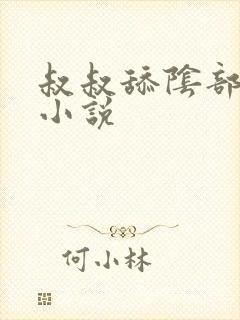 叔叔舔陰部
小說
何小林